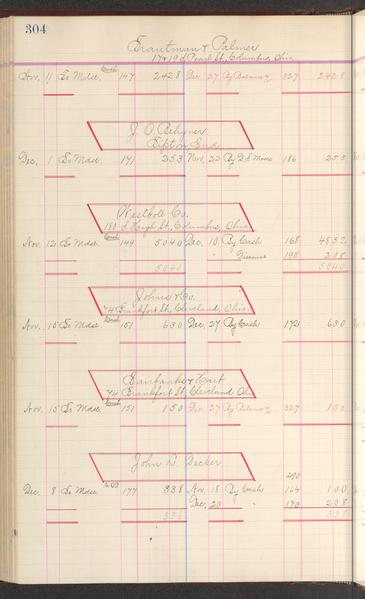 304
Trautman & Palmer
17 & 19 S Pearl St, Columbus, Ohio
Nov. 11 To Mdse. 147 2428 Dec 27 By Balance 327 2428
J. O.
Tipton Ind
Dec. 1 To Mdse. 171 253 Nov. 22 By D S Moses 186 253
Westbote Co.
180 S High St, Columbus, Ohio.
Nov. 12 To Mdse. 149 5040 Dec. 10 By Cash 168 4832
198 208
5040 5040
Johns & Co.
74 Frankfort St, Cleveland, Ohio.
Nov. 15 To Mdse. 151 630 Dec. 27 By Cash 172 630
Fairbanks & Hart
74 Frankfort St, Cleveland Ohio
Nov. 15 To Mdse. 151 150 Dec 27 By Balance 327 150
John R. Decker
Dec. 8 To Mdse. 177 338 Nov. 18 By Cash 164 100
Dec. 20 " 170 238
338 338